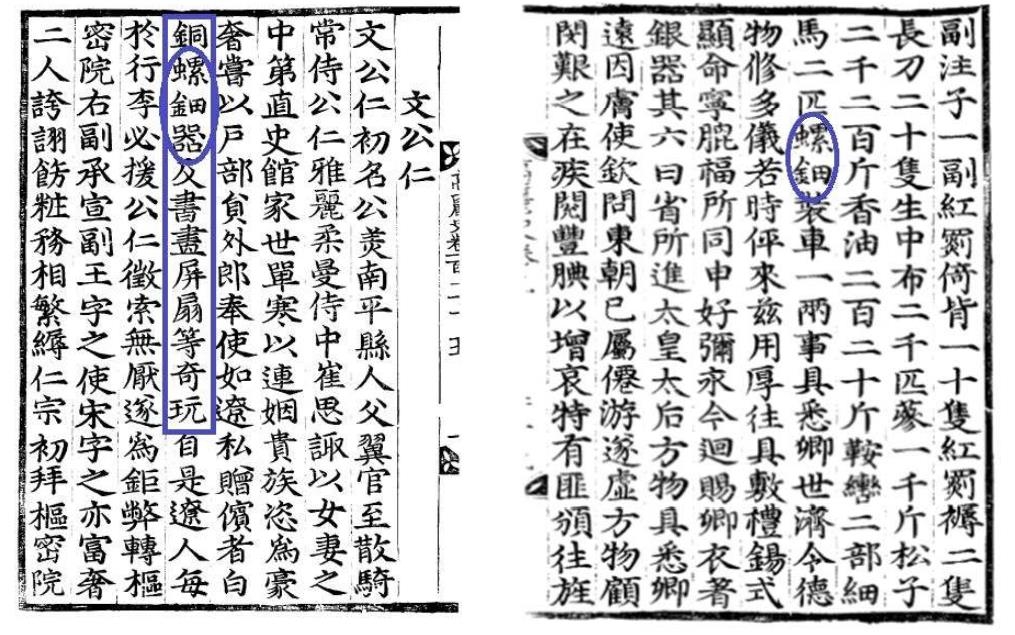 文公仁
文公仁初名公羙南平縣人父翼官至散騎
常侍公仁雅麗柔曼侍中崔思諏以女妻之
中第直史館家世單寒以連姻貴族恣爲豪
奢嘗以戸部員外郎奉使如遼私贈儐者白
銅螺鈿器及書畫屏扇等奇玩自是遼人每
於行李必援公仁徵索無厭遂爲鉅弊轉樞
密院右副承宣副王字之使宋字之亦富奢
二人誇詡飭粧務相繁縟仁宗初拜樞密院
副注子一副紅罽倚背一十隻紅罽褥二隻
長刀二十隻生中布二千匹蔘一千斤松子
二千二百斤香油二百二十斤鞍轡二部細
馬二匹螺鈿裝車一兩事具悉卿世濟令德
物修多儀若時伻來兹用厚往具敷禮錫式
顯命寧膍福所同申好彌永今迴賜卿衣著
銀器其六曰省所進太皇太后方物具悉卿
遠因膚使欽問東朝已屬僊游遂虛方物顧
閔艱之在疚閱豐腆以增哀特有匪頒往旌